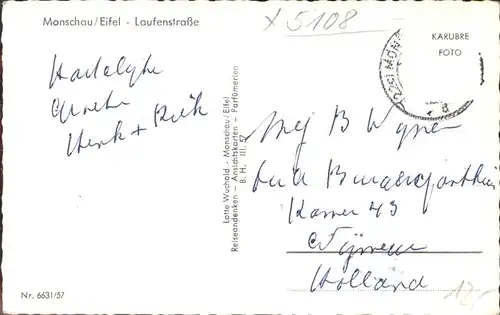 Monschau/Eifel · Laufenstraße
X 5108
KARUBRE
FOTO
Hartelijke
Groeten
Henk + Riek
Lotte Wuchold - Monschau/Eifel
Reiseandenken - Ansichtskarten - Parfümerien
B. H. III. 57
Mej B
Kamer 43
Nijmegen
Holland
12,-
Nr. 6631/57